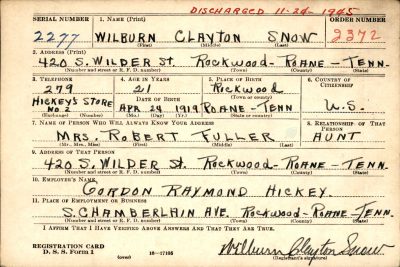 DISCHARGED 11-24-1945
SERIAL NUMBER 1. NAME (Print) ORDER NUMBER
2277 WILBURN CLAYTON SNOW 2372
(First) (Middle) (Last)
2. ADDRESS (Print)
420 S. WILDER ST. ROCKWOOD - ROANE - TENN.
(Number and street or R. F. D. number) (Town) (County) (State)
3. TELEPHONE 4. AGE IN YEARS 5. PLACE OF BIRTH 6. COUNTRY OF CITIZENSHIP
279 21 ROCKWOOD
HICKEY'S STORE NO. 2 DATE OF BIRTH (Town or county)
APR. 24, 1919 ROANE - TENN U.S.
(Exchange) (Number) (Mo.) (Day) (Yr.) (State or country)
7. NAME OF PERSON WHO WILL ALWAYS KNOW YOUR ADDRESS 8. RELATIONSHIP OF THAT PERSON
MRS. ROBERT FULLER AUNT
(Mr., Mrs., Miss) (First) (Middle) (Last)
9. ADDRESS OF THAT PERSON
420 S. WILDER St. ROCKWOOD - ROANE - TENN.
(Number and street or R. F. D. number) (Town) (County) (State)
10. EMPLOYER'S NAME
GORDON RAYMOND HICKEY
11. PLACE OF EMPLOYMENT OR BUSINESS
S. CHAMBERLAIN AVE ROCKWOOD - ROANE - TENN.
(Number and street or R. F. D. number) (Town) (County) (State)
I AFFIRM THAT I HAVE VERIFIED ABOVE ANSWERS AND THAT THEY ARE TRUE.
REGISTRATION CARD
D. S. S. Form 1 16-17105 Wilburn Clayton Snow
(over) (Registrant's signature)